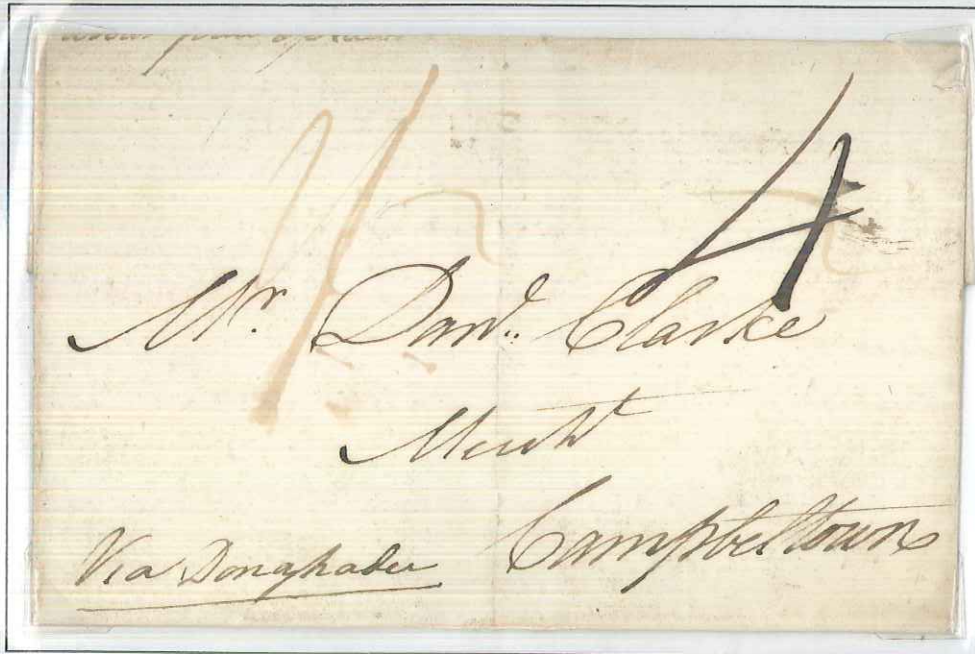 4
Mr. Davd. Clarke
Mercht
Campbeltown
Via Donaghadee